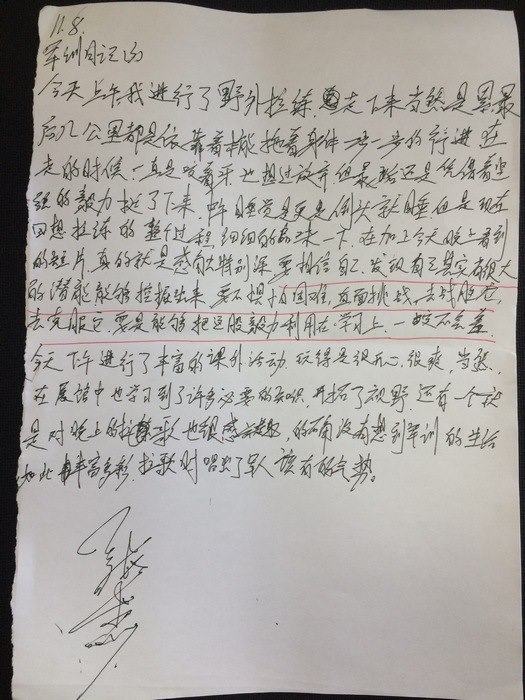 11.8.
军训日记
今天上午我进行了野外拉练.走下来当然是累.最
后几公里都是依靠着本能拖着身体一步一步的行进 在
走的时候.一直是咬着牙.也想过放弃但最后还是凭借着坚
强的毅力挺了下来.中午睡觉更是倒头就睡但是现在
回想拉练的整个过程.细细的一下.在加上今天晚上看到
的短片.真的就是感触特别深要相信自己.发现自己其实有很大
的潜能能够挖掘出来.要不惧怕困难,直面挑战.去战胜它,
去克服它.要是能够把这股毅力利用在学习上.一定不会差.
今天下午进行了丰富的课外活动.玩得是很开心.很爽,当然.
在展馆中也学习到了许多必要的知识.开拓了视野.还有一个就
是对晚上的拉歌也很感兴趣,的确没有想到军训的生活
如此丰富多彩.拉歌时唱出了军人该有的气势。